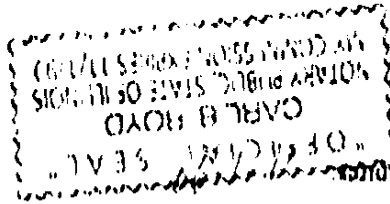 "OFFICIAL SEAL"
CARL B BOYD
NOTARY PUBLIC, STATE OF ILLINOIS
MY COMMISSION EXPIRES